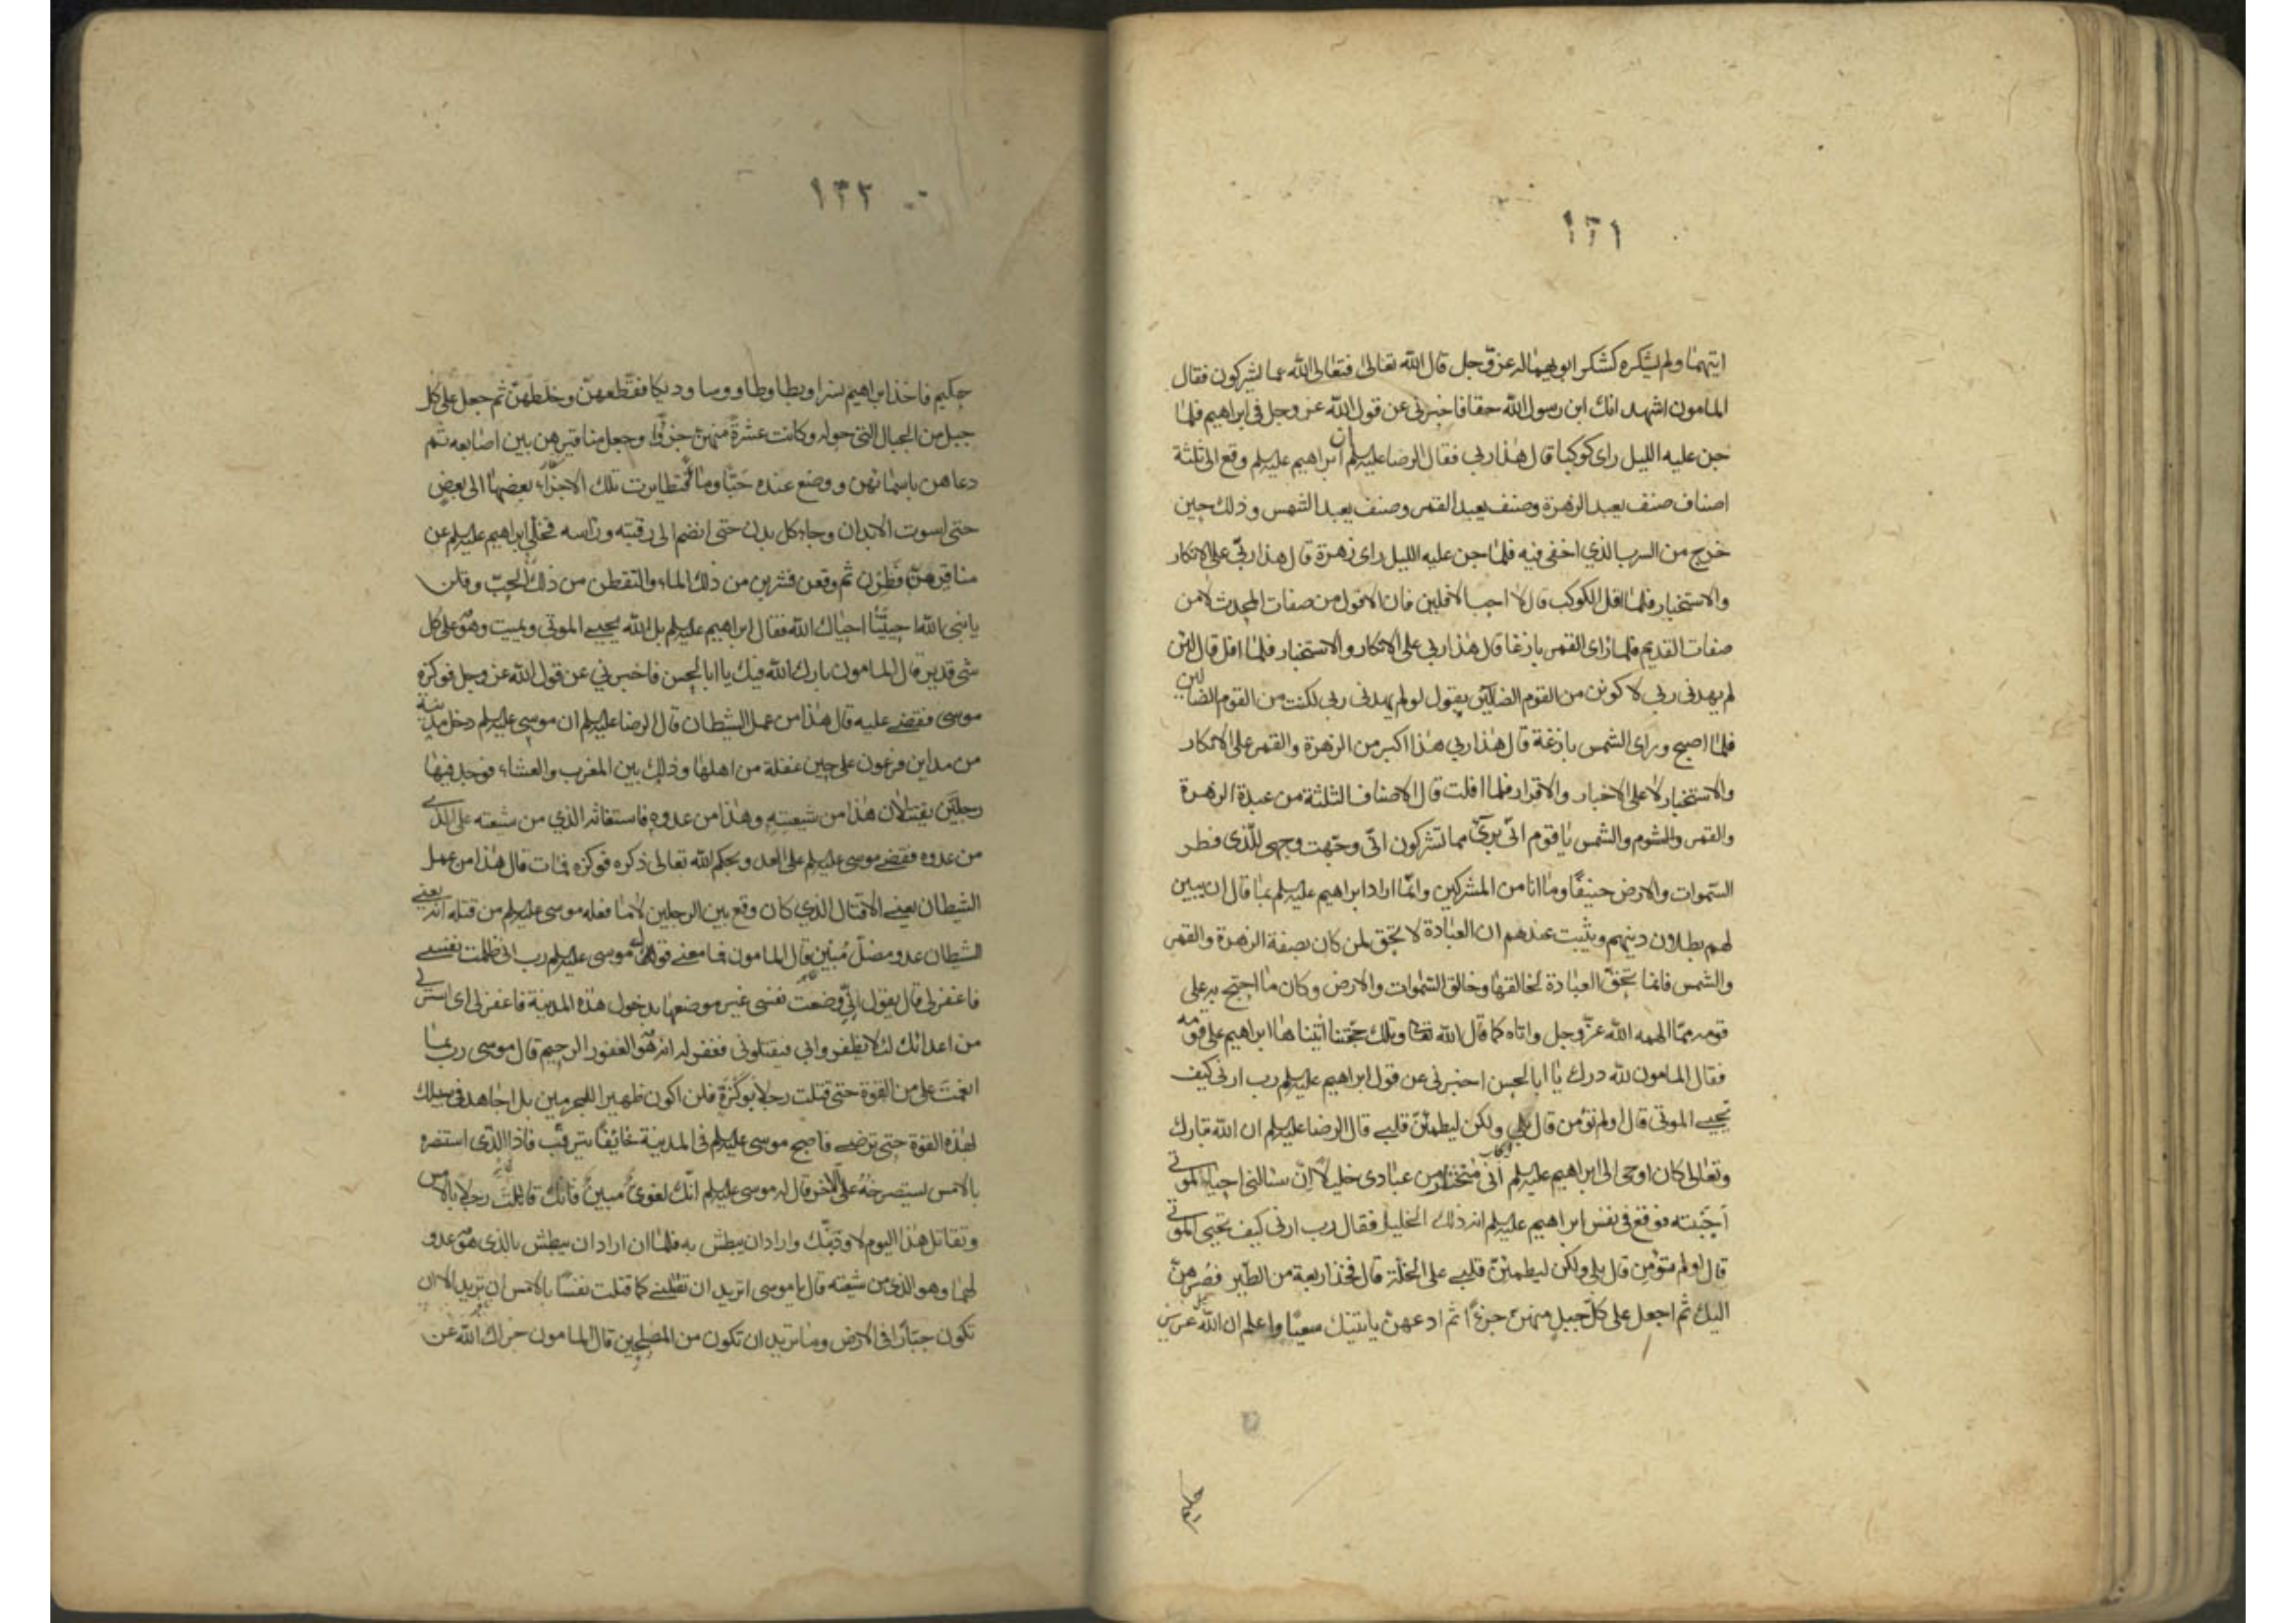 ١٣١
ايتهما ولم يشكره كشكر ابويهما له عز وجل قال الله تعالى فتعالى الله عما يشركون فقال
المامون اشهد انك ابن رسول الله حقا فاخبرني عن قول الله عز وجل في ابراهيم فلما
جن عليه الليل راى كوكبا قال هذا ربي فقال الرضا عليه السلم ان ابراهيم عليه السلم وقع الى ثلثة
اصناف صنف يعبد الزهرة وصنف يعبد القمر وصنف يعبد الشمس وذلك حين
خرج من السرب الذي اخفى فيه فلما جن عليه الليل راى زهرة قال هذا ربّي على الانكار
والاستخبار فلما افل الكوكب قال لا احب الافلين فان الافول من صفات المحدث لا من
صفات القديم فلما راى القمر بازغا قال هذا ربي على الانكار والاستخبار فلما افل قال لئن
لم يهدنى ربى لاكونن من القوم الضالين يقول لو لم يهدنى ربى لكنت من القوم الضالين
فلما اصبح وراى الشمس بازغة قال هذا ربي هذا اكبر من الزهرة والقمر على الانكار
والاستخبار لا على الاخبار والاقرار فلما افلت قال الاصناف الثلثة من عبدة الزهرة
والقمر والشوم والشمس يا قوم انّى برىٓ مما تشركون انّى وجّهت وجهى للّذى فطر
السّموات والارض حنيفًا وما انا من المشركين وانّما اراد ابراهيم عليه السلم بما قال ان يبين
لهم بطلان دينهم ويثبت عندهم ان العبادة لا تحق لمن كان بصفة الزهرة والقمر
والشمس فانما تحقّ العبادة لخالقها وخالق السّموات والارض وكان ما احتج به على
قومه ممّا الهمه الله عزّ وجل واتاه كما قال الله تعالى وتلك حجّتنا اٰتيناها ابراهيم على قومه
فقال المامون لله درك يا ابا الحسن اخبرنى عن قول ابراهيم عليه السلم رب ارنى كيف
تحيى الموتى قال اولم تؤمن قال بلى ولكن ليطمئنّ قلبى قال الرضا عليه السلم ان الله تبارك
وتعالى كان اوحى الى ابراهيم عليه السلم انى متخذ من عبادى خليلًا اِنْ سالنى احياء الموتى
اَجَبْته فوقع فى نفس ابراهيم عليه السلم انه ذلك الخليل فقال رب ارنى كيف تحيى الموتى
قال اولم تؤمن قال بلى ولكن ليطمئنّ قلبى على الخلّة قال فخذ اربعة من الطّير فصُرهنّ
اليك ثم اجعل على كلّ جبل منهنّ جزءًا ثم ادعهنّ ياتينك سعيًا واعلم ان الله عزيز
حكيم
١٣٢
حكيم فاخذ ابراهيم نسرا وبطا وطاووسا وديكا فقطعهنّ وخلطهنّ ثم جعل على كل
جبل من الجبال التى حوله وكانت عشرة منهنّ جزءًا وجعل مناقيرهن بين اصابعه ثم
دعاهن باسمائهن ووضع عنده حَبًّا وماء فتطايرت تلك الاجزاء بعضها الى بعض
حتى استوت الابدان وجاء كل بدن حتى انضم الى رقبته وراسه فخلّى ابراهيم عليه السلم عن
مناقيرهنّ فطِرْن ثم وقعن فشربن من ذلك الماء والتقطن من ذلك الحبّ وقلن
يا نبى الله احييتنا احياك الله فقال ابراهيم عليه السلم بل الله يحيى الموتى ويميت وهو على كل
شى قدير قال المامون بارك الله فيك يا ابا الحسن فاخبرني عن قول الله عز وجل فوكزه
موسى فقضى عليه قال هذا من عمل الشيطان قال الرضا عليه السلم ان موسى عليه السلم دخل مدينة
من مداين فرعون على حين غفلة من اهلها وذلك بين المغرب والعشاء فوجد فيها
رجلين يقتتلان هذا من شيعته وهذا من عدوه فاستغاثه الذي من شيعته على الذى
من عدوه فقضى موسى عليه السلم على العدو بحكم الله تعالى ذكره فوكزه فمات قال هذا من عمل
الشيطان يعنى الاقتتال الذي كان وقع بين الرجلين لا ما فعله موسى عليه السلم من قتله انه يعنى
الشيطان عدو مضلّ مُبين قال المامون فما معنى قول موسى عليه السلم رب انى ظلمت نفسى
فاغفر لى قال يقول انّي وضعت نفسى غير موضعها بدخول هذه المدينة فاغفر لى اى استرنى
من اعدائك لئلا يظفروا بي فيقتلونى فغفر له انه هو الغفور الرحيم قال موسى رب بما
انعمت على من القوة حتى قتلت رجلا بوكْزَة فلن اكون ظهيرا للمجرمين بل اجاهد فى سبيلك
بهذه القوة حتى ترضى فاصبح موسى عليه السلم فى المدينة خائفًا يترقّب فاذا الذى استنصره
بالامس يستصرخهُ على اٰخر قال له موسى عليه السلم انّك لغوىٌّ مبينٌ قاتلت رجلا بالامس
وتقاتل هذا اليوم لاودّبنّك واراد ان يبطش به فلما ان اراد ان يبطش بالذى هو عدو
لهما وهو الذى من شيعته قال يا موسى اتريد ان تقتلنى كما قتلت نفسًا بالامس ان تريد الا ان
تكون جبّارًا فى الارض وما تريد ان تكون من المصلحين قال المامون جزاك الله عن